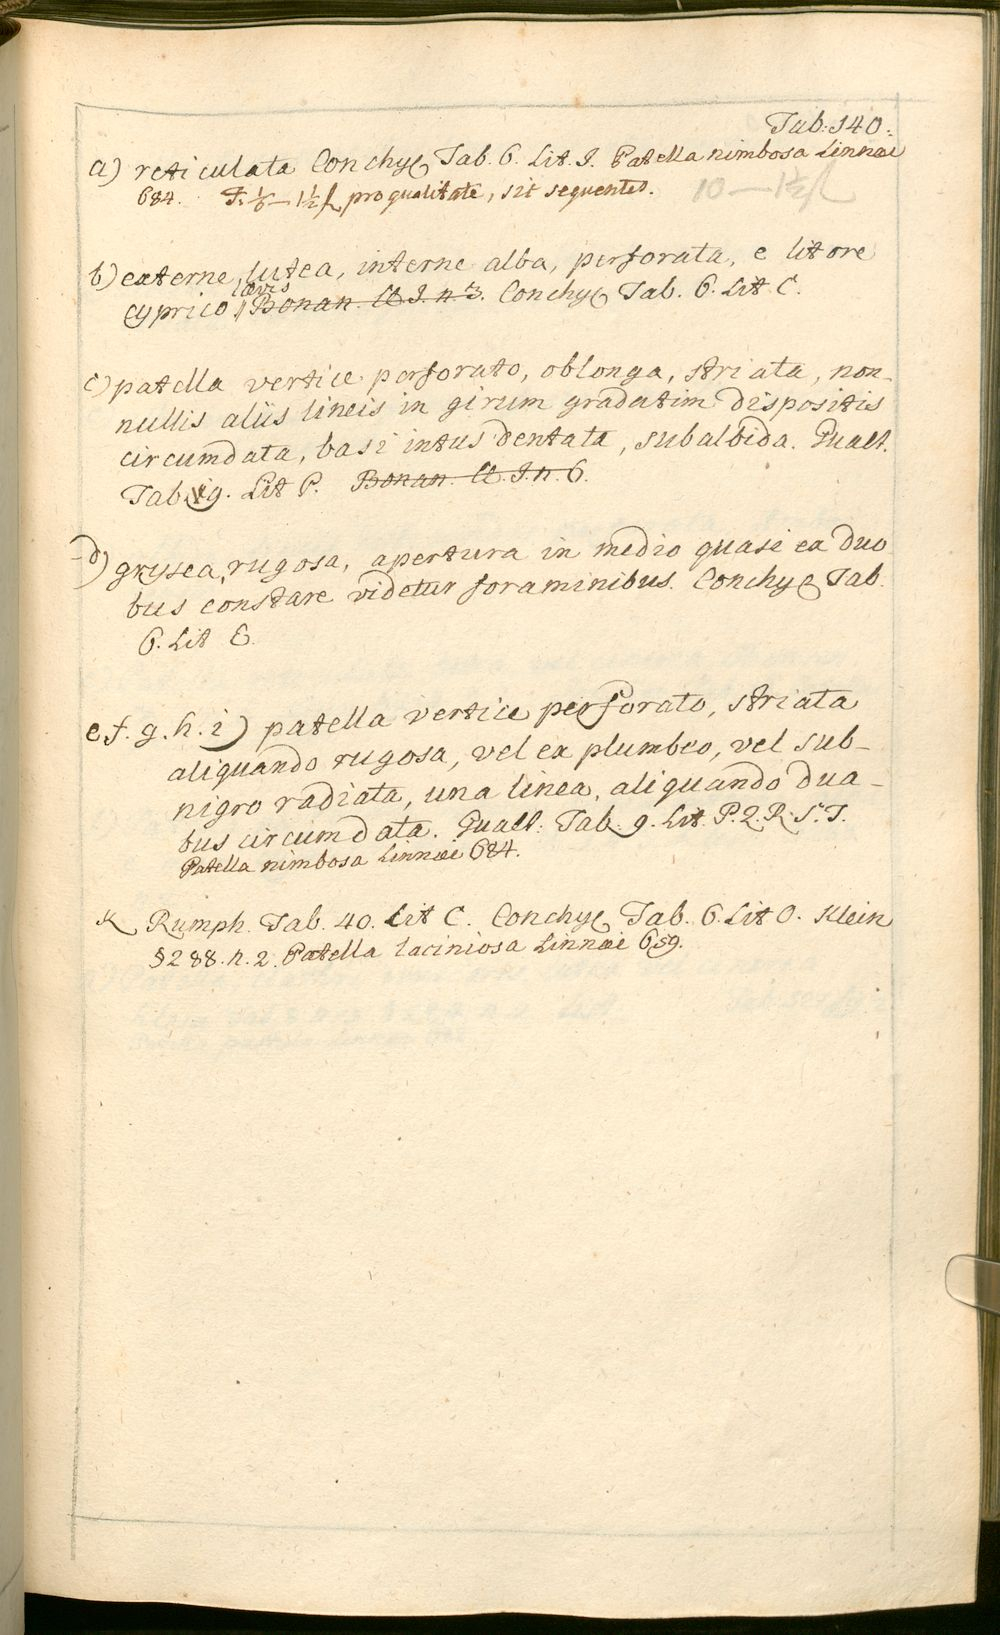 Tab: 140.
a) reticulata Conchyl Tab. 6. Lit. I. Patella nimbosa Linnaei
684. F. 1/6 — 1 1/2 fl pro qualitate, sic sequentes.
10 — 1 1/2 fl
b) externe lutea, interne alba, perforata, e litore
laevis
cyprico Bonan. Cl. I. n 3. Conchyl Tab. 6. Lit C.
c) patella vertice perforato, oblonga, striata, non-
nullis aliis lineis in girum gradatim dispositis
circumdata, basi intus dentata, subalbida. Gualt.
Tab. 9. Lit P. Bonan. Cl. I. n. 6.
d) grysea, rugosa, apertura in medio quasi ex duo
bus constare videtur foraminibus. Conchyl Tab.
6. Lit E.
e f. g. h. i) patella vertice perforato, striata
aliquando rugosa, vel ex plumbeo, vel sub-
nigro radiata, una linea, aliquando dua-
bus circumdata. Gualt: Tab. 9. Lit. P. Q. R. S. T.
Patella nimbosa Linnaei 684.
K Rumph. Tab. 40. Lit C. Conchyl Tab. 6. Lit O. Klein
§ 288. n. 2. Patella laciniosa Linnaei 659.